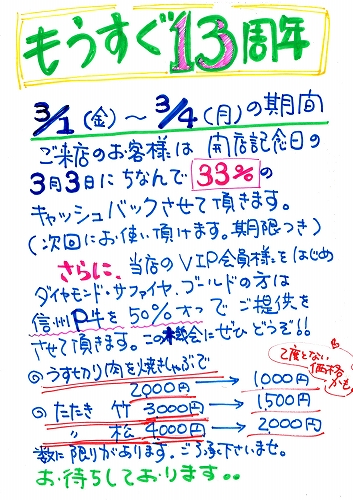 もうすぐ13周年
3/1(金)~3/4(月)の期間
ご来店のお客様は 開店記念日の
3月3日にちなんで 33%の
キャッシュバックさせて頂きます。
(次回にお使い頂けます。期限つき)
さらに、当店のVIP会員様をはじめ
ダイヤモンド・サファイヤ、ゴールドの方は
信州P牛を50%オフでご提供を
させて頂きます。この機会にぜひどうぞ!!
2度とない
価格
かも
◎うすぎり肉を焼きしゃぶで
2000円→1000円
◎たたき 竹 3000円→1,500円
〃 松 4000円→2000円
数に限りがあります。ご了承下さいませ。
お待ちしております。。